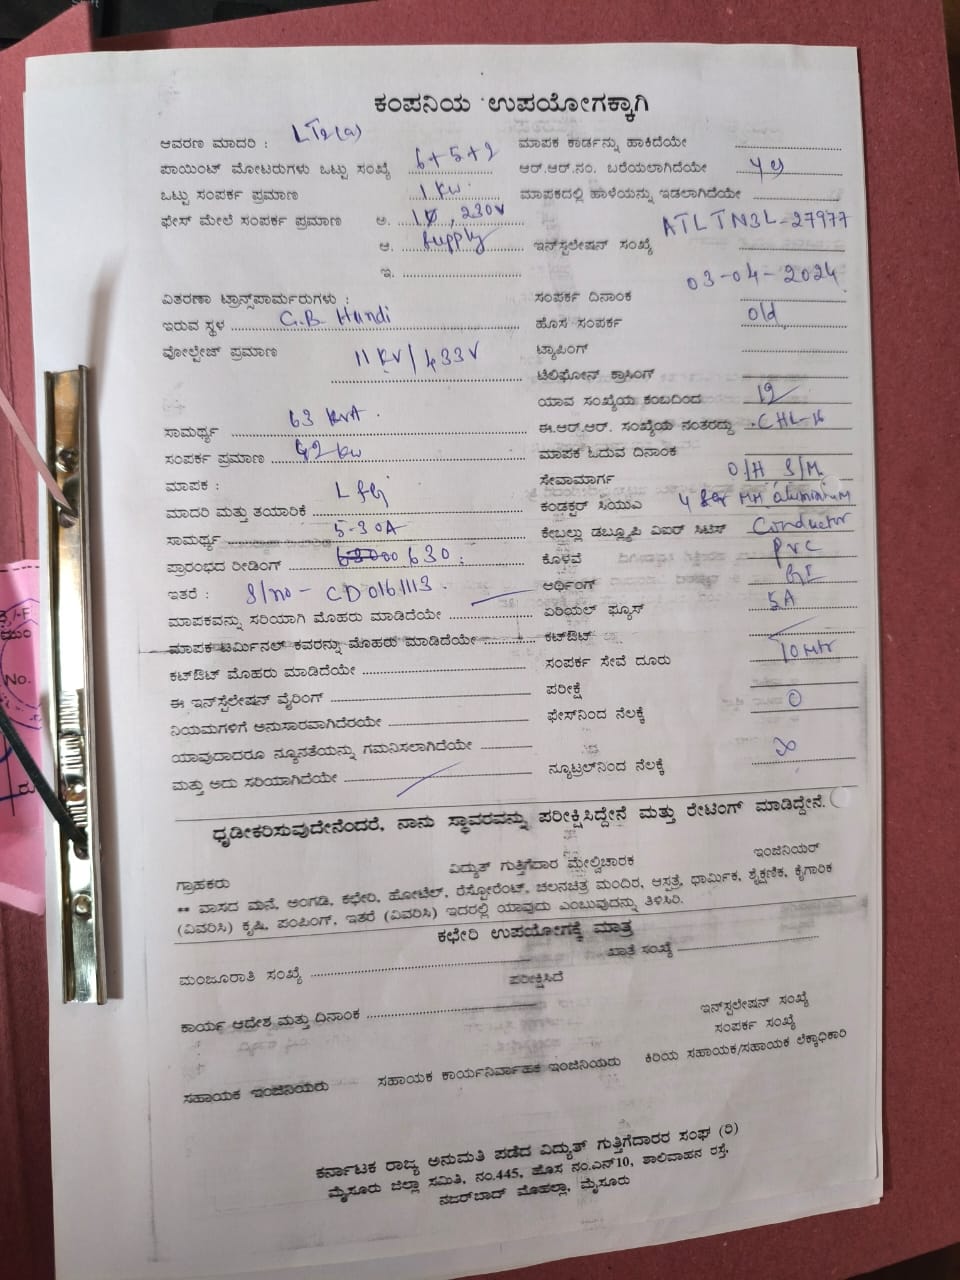 ಕಂಪನಿಯ ಉಪಯೋಗಕ್ಕಾಗಿ
ಆವರಣ ಮಾದರಿ : LT2(a)
ಪಾಯಿಂಟ್ ಮೋಟರುಗಳು ಒಟ್ಟು ಸಂಖ್ಯೆ 6+5+2
ಒಟ್ಟು ಸಂಪರ್ಕ ಪ್ರಮಾಣ 1 KW
ಫೇಸ್ ಮೇಲೆ ಸಂಪರ್ಕ ಪ್ರಮಾಣ ಅ. 1Ø, 230V
ಆ. Supply
ಇ.
ವಿತರಣಾ ಟ್ರಾನ್ಸ್‌ಫಾರ್ಮರುಗಳು :
ಇರುವ ಸ್ಥಳ G.B. Hundi
ವೋಲ್ಟೇಜ್ ಪ್ರಮಾಣ 11 KV/433V
ಸಾಮರ್ಥ್ಯ 63 KVA
ಸಂಪರ್ಕ ಪ್ರಮಾಣ 42 KW
ಮಾಪಕ :
ಮಾದರಿ ಮತ್ತು ತಯಾರಿಕೆ L
ಸಾಮರ್ಥ್ಯ 5-30A
ಪ್ರಾರಂಭದ ರೀಡಿಂಗ್ 630
ಇತರೆ : S/no - CD0161113
ಮಾಪಕವನ್ನು ಸರಿಯಾಗಿ ಮೊಹರು ಮಾಡಿದೆಯೇ
ಮಾಪಕ ಟರ್ಮಿನಲ್ ಕವರನ್ನು ಮೊಹರು ಮಾಡಿದೆಯೇ
ಕಟ್‌ಔಟ್ ಮೊಹರು ಮಾಡಿದೆಯೇ
ಈ ಇನ್‌ಸ್ಟಲೇಷನ್ ವೈರಿಂಗ್
ನಿಯಮಗಳಿಗೆ ಅನುಸಾರವಾಗಿದೆರಯೇ
ಯಾವುದಾದರೂ ನ್ಯೂನತೆಯನ್ನು ಗಮನಿಸಲಾಗಿದೆಯೇ
ಮತ್ತು ಅದು ಸರಿಯಾಗಿದೆಯೇ
ಮಾಪಕ ಕಾರ್ಡನ್ನು ಹಾಕಿದೆಯೇ
ಆರ್.ಆರ್.ನಂ. ಬರೆಯಲಾಗಿದೆಯೇ yes
ಮಾಪಕದಲ್ಲಿ ಹಾಳೆಯನ್ನು ಇಡಲಾಗಿದೆಯೇ
ಇನ್‌ಸ್ಟಲೇಷನ್ ಸಂಖ್ಯೆ ATLTN3L-27977
ಸಂಪರ್ಕ ದಿನಾಂಕ 03-04-2024
ಹೊಸ ಸಂಪರ್ಕ old
ಟ್ಯಾಪಿಂಗ್
ಟೆಲಿಫೋನ್ ಕ್ರಾಸಿಂಗ್
ಯಾವ ಸಂಖ್ಯೆಯ ಕಂಬದಿಂದ 12
ಈ.ಆರ್.ಆರ್. ಸಂಖ್ಯೆಯ ನಂತರದ್ದು CHL-16
ಮಾಪಕ ಓದುವ ದಿನಾಂಕ
ಸೇವಾಮಾರ್ಗ O/H S/M
ಕಂಡಕ್ಟರ್ ಸಿಯುವಿ 4 MM aluminium
ಕೇಬಲ್ಲು ಡಬ್ಲ್ಯೂಪಿ ಎಐರ್ ಸಿಟಿಸ್ Conductor
ಕೊಳವೆ PVC
ಆರ್ಥಿಂಗ್ GI
ಏರಿಯಲ್ ಫ್ಯೂಸ್ 5A
ಕಟ್‌ಔಟ್
ಸಂಪರ್ಕ ಸೇವೆ ದೂರು 10 Mtr
ಪರೀಕ್ಷೆ
ಫೇಸ್‌ನಿಂದ ನೆಲಕ್ಕೆ 0
ನ್ಯೂಟ್ರಲ್‌ನಿಂದ ನೆಲಕ್ಕೆ
ಧೃಡೀಕರಿಸುವುದೇನೆಂದರೆ, ನಾನು ಸ್ಥಾವರವನ್ನು ಪರೀಕ್ಷಿಸಿದ್ದೇನೆ ಮತ್ತು ರೇಟಿಂಗ್ ಮಾಡಿದ್ದೇನೆ.
ಗ್ರಾಹಕರು ವಿದ್ಯುತ್ ಗುತ್ತಿಗೆದಾರ ಮೇಲ್ವಿಚಾರಕ ಇಂಜಿನಿಯರ್
** ವಾಸದ ಮನೆ, ಅಂಗಡಿ, ಕಛೇರಿ, ಹೋಟೆಲ್, ರೆಸ್ಟೋರೆಂಟ್, ಚಲನಚಿತ್ರ ಮಂದಿರ, ಆಸ್ಪತ್ರೆ, ಧಾರ್ಮಿಕ, ಶೈಕ್ಷಣಿಕ, ಕೈಗಾರಿಕ
(ವಿವರಿಸಿ) ಕೃಷಿ, ಪಂಪಿಂಗ್, ಇತರೆ (ವಿವರಿಸಿ) ಇದರಲ್ಲಿ ಯಾವುದು ಎಂಬುವುದನ್ನು ತಿಳಿಸಿರಿ.
ಕಛೇರಿ ಉಪಯೋಗಕ್ಕೆ ಮಾತ್ರ
ಮಂಜೂರಾತಿ ಸಂಖ್ಯೆ ಖಾತೆ ಸಂಖ್ಯೆ
ಪರೀಕ್ಷಿಸಿದೆ
ಕಾರ್ಯ ಆದೇಶ ಮತ್ತು ದಿನಾಂಕ
ಇನ್‌ಸ್ಟಲೇಷನ್ ಸಂಖ್ಯೆ
ಸಂಪರ್ಕ ಸಂಖ್ಯೆ
ಸಹಾಯಕ ಇಂಜಿನಿಯರು ಸಹಾಯಕ ಕಾರ್ಯನಿರ್ವಾಹಕ ಇಂಜಿನಿಯರು ಕಿರಿಯ ಸಹಾಯಕ/ಸಹಾಯಕ ಲೆಕ್ಕಾಧಿಕಾರಿ
ಕರ್ನಾಟಕ ರಾಜ್ಯ ಅನುಮತಿ ಪಡೆದ ವಿದ್ಯುತ್ ಗುತ್ತಿಗೆದಾರರ ಸಂಘ (ರಿ)
ಮೈಸೂರು ಜಿಲ್ಲಾ ಸಮಿತಿ, ನಂ.445, ಹೊಸ ನಂ.ಎನ್10, ಶಾಲಿವಾಹನ ರಸ್ತೆ,
ನಜರ್‌ಬಾದ್ ಮೊಹಲ್ಲಾ, ಮೈಸೂರು
No.